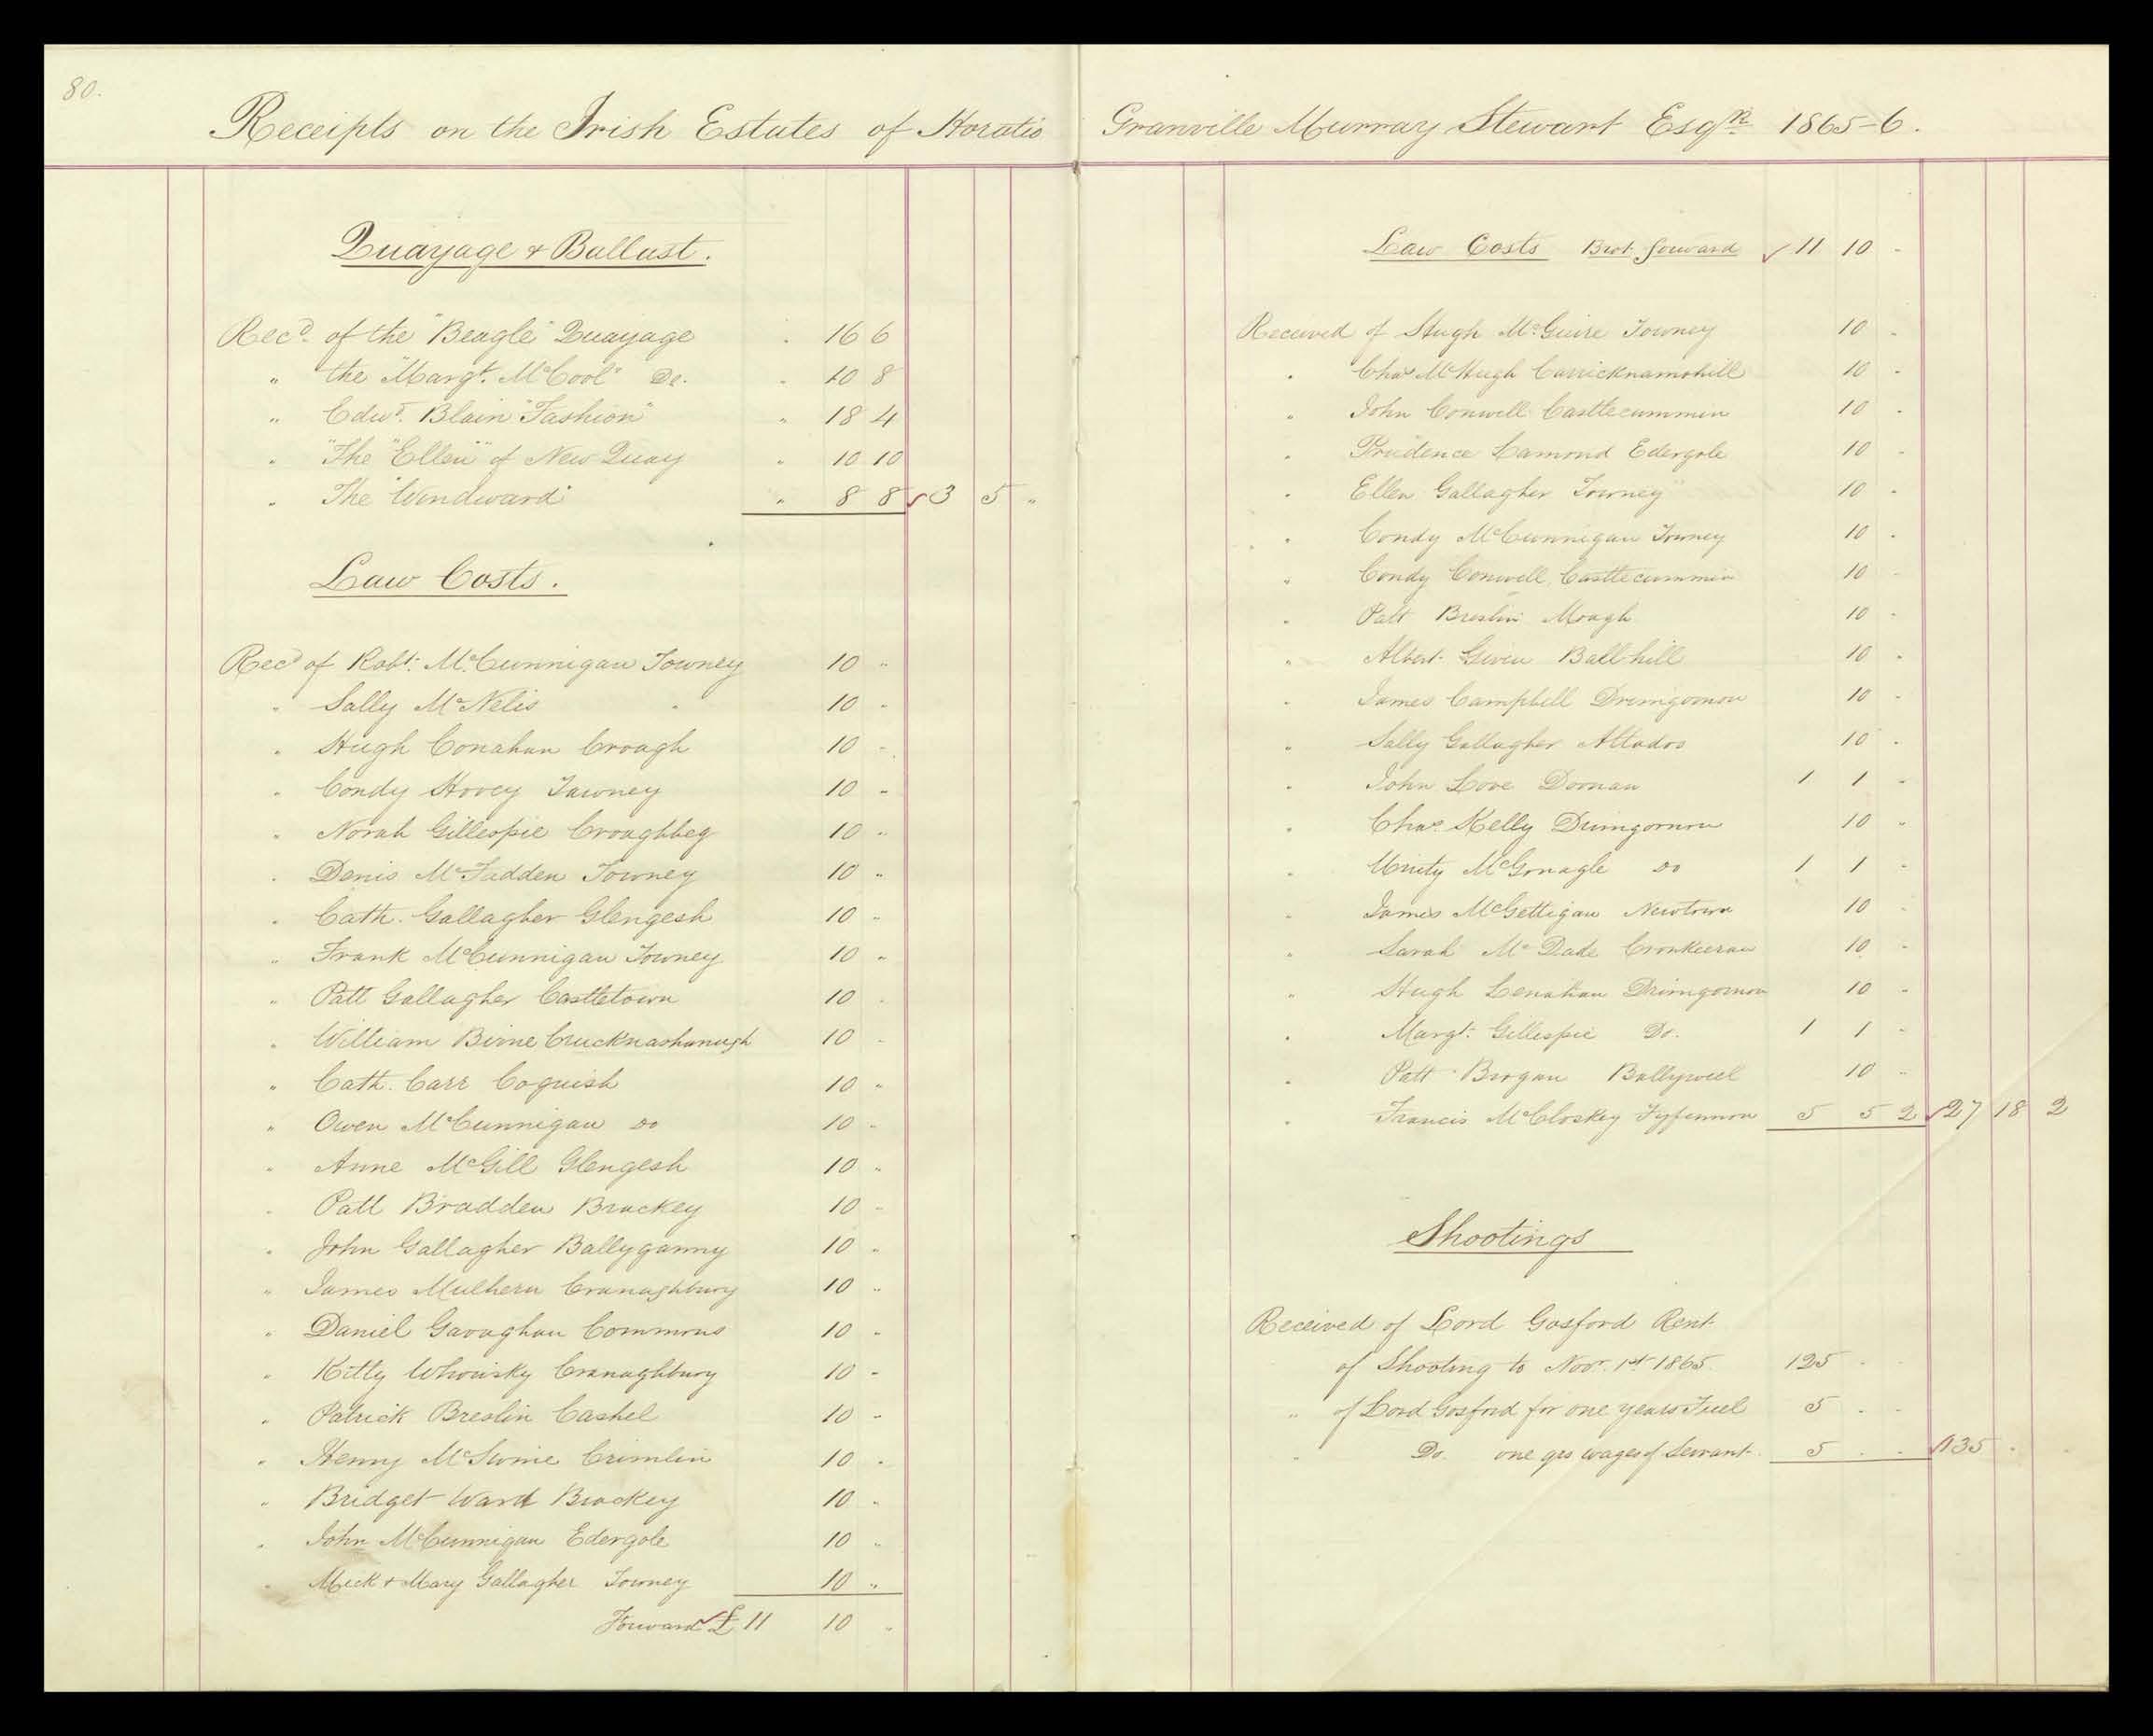 80.
Receipts on the Irish Estates of Horatio Granville Murray Stewart Esqre 1865-6.
Quayage & Ballast.
Recd. of the "Beagle" Quayage " 16 6
" the "Margt. McCool" Do. " 10 8
" Edwd. Blain "Fashion" " 18 4
" "The "Ellen" of New Quay " 10 10
" The "Windward" " 8 8 3 5 "
Law Costs.
Recd of Robt. McCunnigan Towney 10 "
" Sally McNelis " 10 "
" Hugh Conahan Croagh 10 "
" Condy Hovey Tawney 10 "
" Norah Gillespie Croaghbeg 10 "
" Denis McFadden Towney 10 "
" Cath. Gallagher Glengesh 10 "
" Frank McCunnigan Towney 10 "
" Patt Gallagher Castletown 10 "
" William Birne Crucknashanugh 10 "
" Cath. Carr Coguish 10 "
" Owen McCunnigan Do 10 "
" Anne McGill Glengesh 10 "
" Patt Bradden Brackey 10 "
" John Gallagher Ballyganny 10 "
" James Mulhern Cranaghbury 10 "
" Daniel Gavaghan Commons 10 "
" Kitty Whorisky Cranaghbury 10 "
" Patrick Breslin Cashel 10 "
" Henny McSwine Crimlin 10 "
" Bridget Ward Brackey 10 "
" John McCunnigan Edergole 10 "
" Mick & Mary Gallagher Towney 10 "
Forward £ 11 10 "
Law Costs Brot. forward 11 10 "
Received of Hugh McGuire Towney 10 "
" Chas McHugh Carricknamohill 10 "
" John Conwell Castlecummin 10 "
" Prudence Lamond Edergole 10 "
" Ellen Gallagher Towney 10 "
" Condy McCunnigan Towney 10 "
" Condy Conwell Castlecummin 10 "
" Patt Breslin Moagh 10 "
" Albert Given Ballhill 10 "
" James Campbell Drumgornon 10 "
" Sally Gallagher Altados 10 "
" John Love Doonan 1 1 "
" Chas. Kelly Drumgornon 10 "
" Unity McGonagle Do 1 1 "
" James McGettigan Newtown 10 "
" Sarah McDade Cronkeeran 10 "
" Hugh Lenahan Drimgornon 10 "
" Margt. Gillespie Do. 1 1 "
" Patt Brogan Ballyweel 10 "
" Francis McCloskey Fyfannon 5 5 2 27 18 2
Shootings
Received of Lord Gosford Rent
of Shooting to Novr. 1st 1865 125 " "
" of Lord Gosford for one years Fuel 5 " "
" Do. one qrs wages of Servant 5 " " 135 "